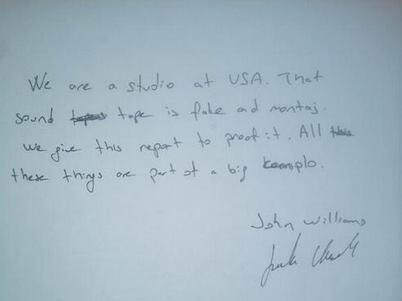 We are a studio at USA. That
sound tape is fake and montaj.
we give this report to proof it. All
these things are part of a big komplo.
John Williams